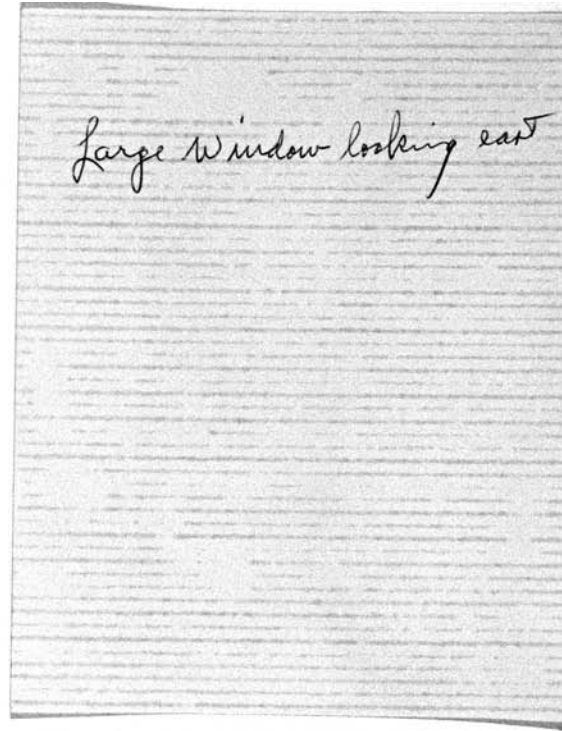 Large Window looking east